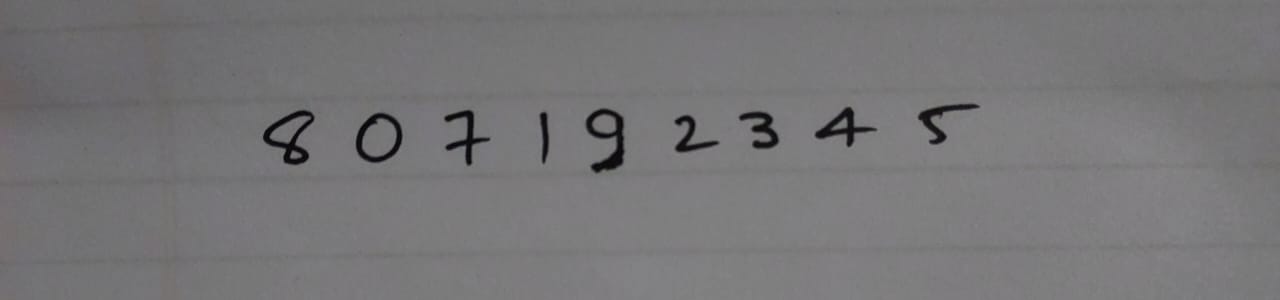 8 0 7 1 9 2 3 4 5